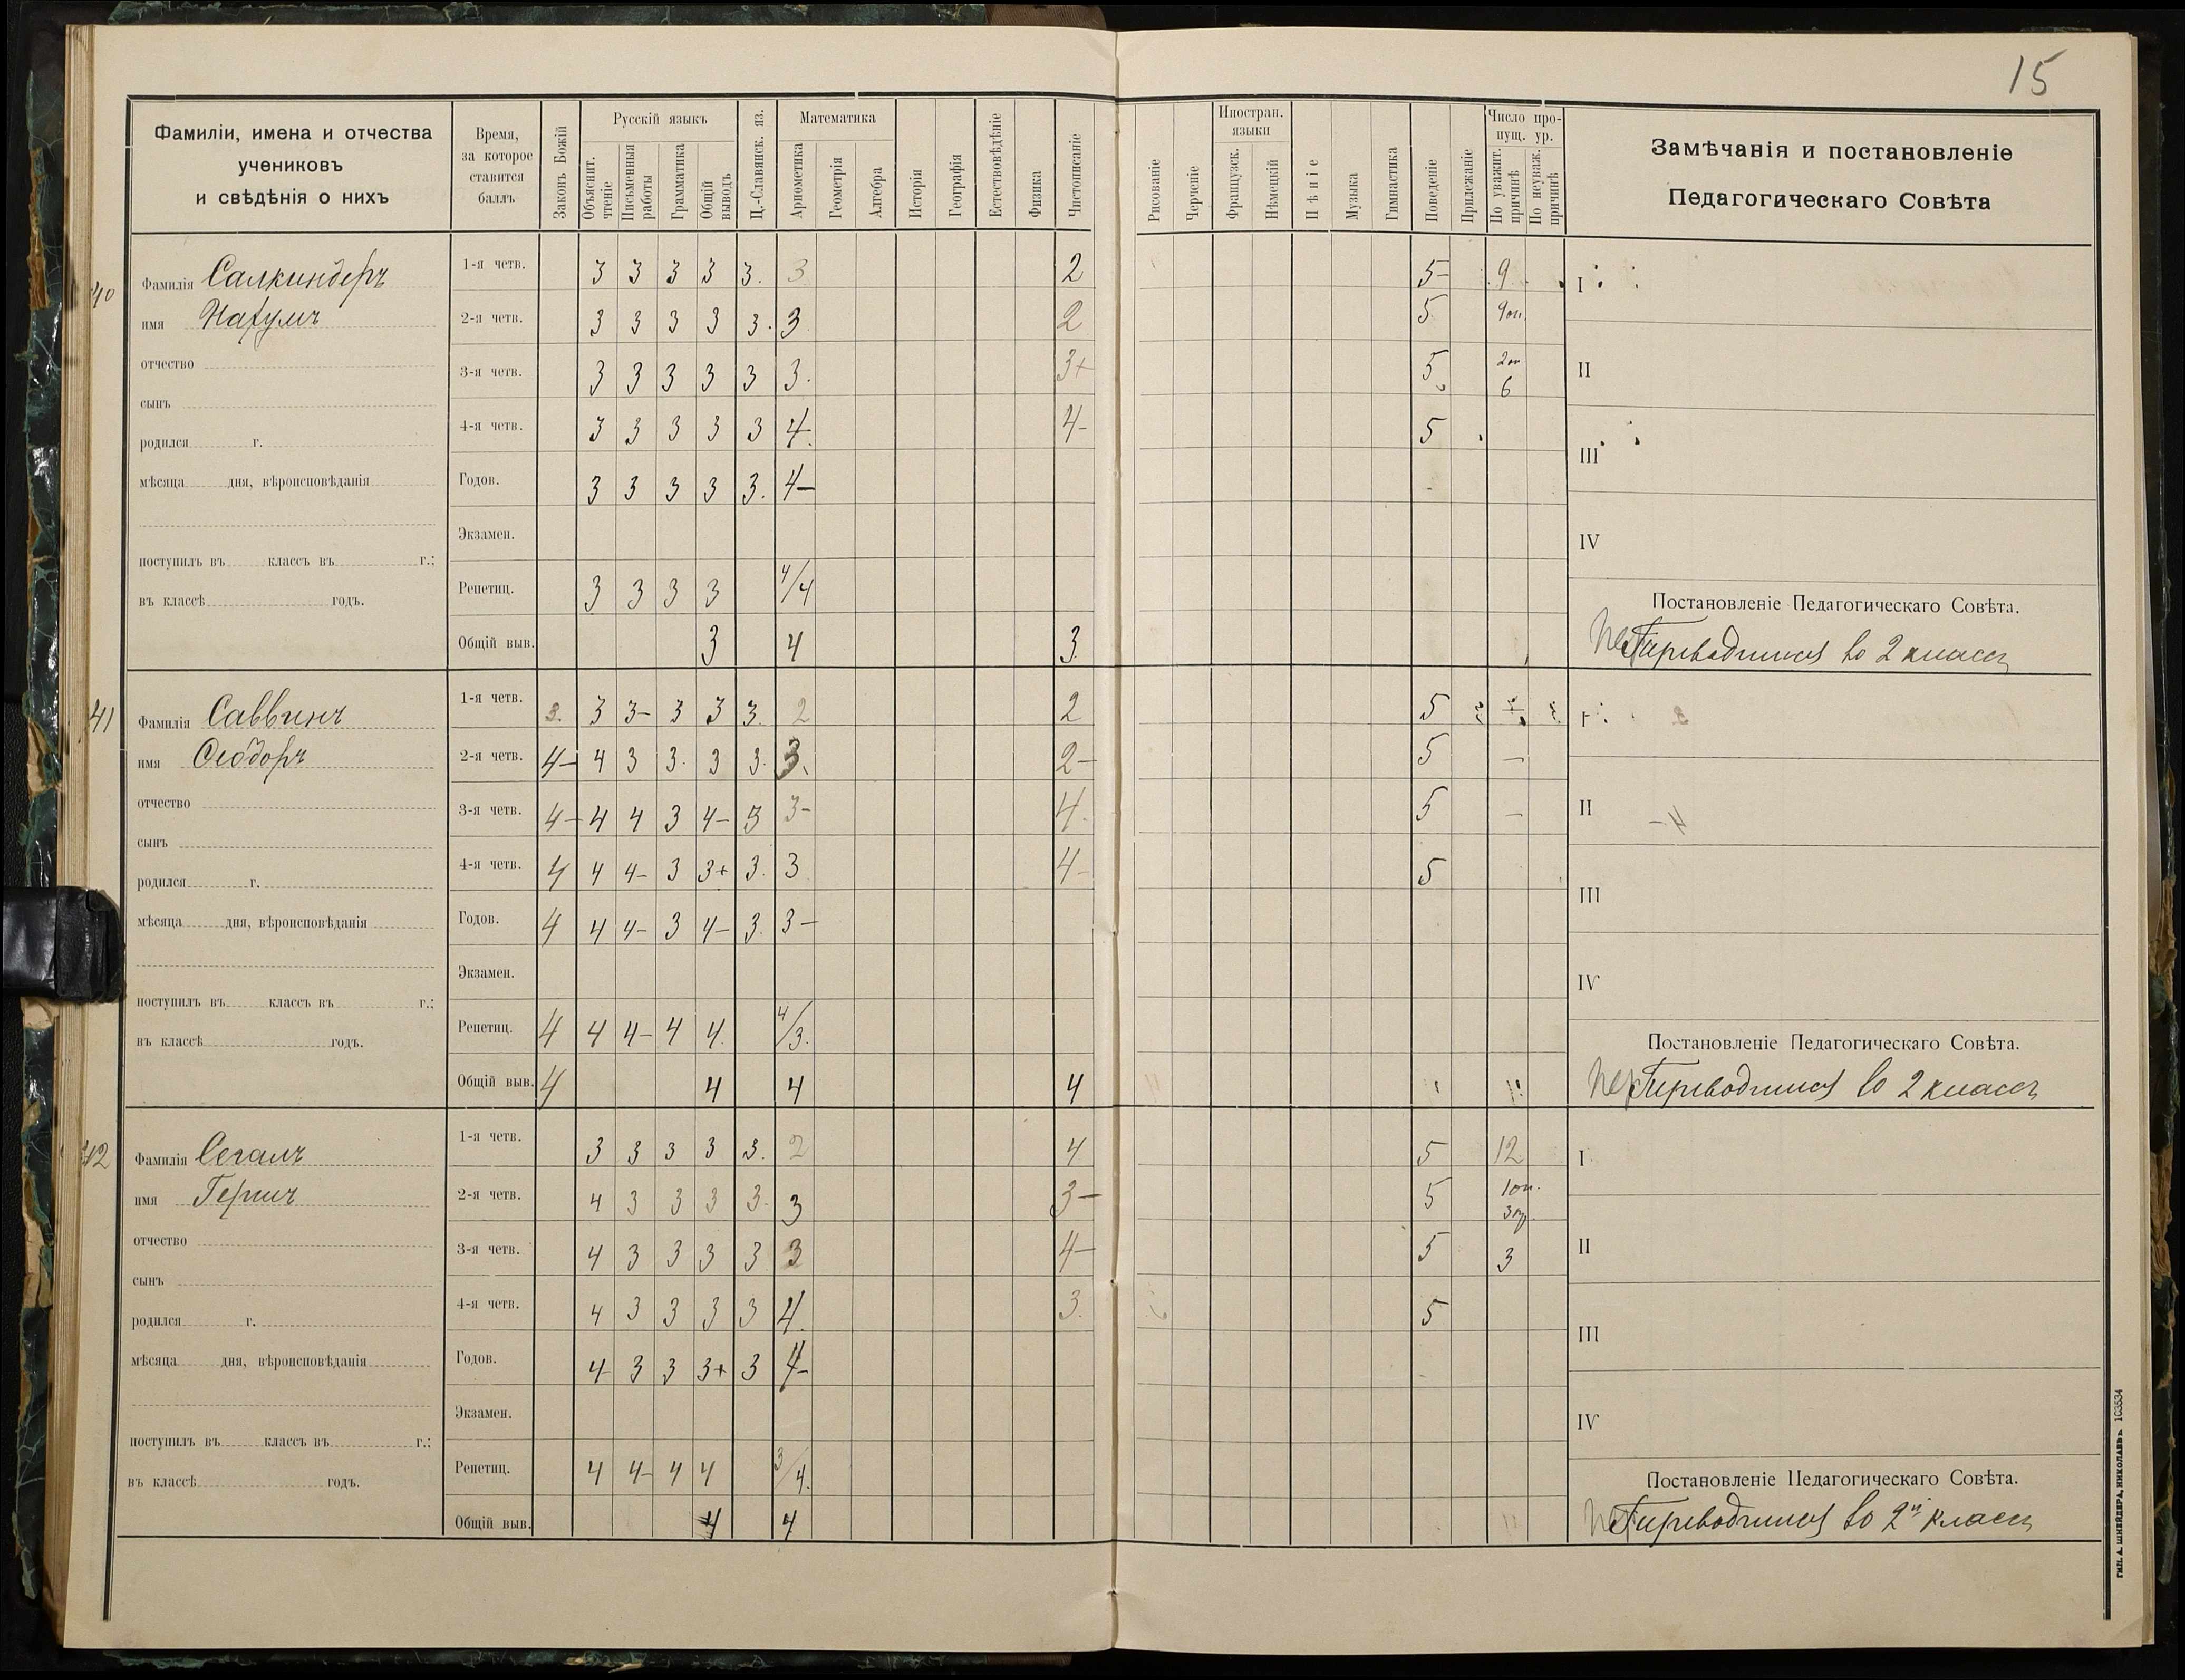 15
Фамиліи, имена и отчества
учениковъ
и свѣдѣнія о нихъ
Время,
за которое
ставится
баллъ
Законъ Божій
Русскій языкъ
Объяснит. чтеніе
Письменныя работы
Грамматика
Общій выводъ
Ц.-Славянск. яз.
Математика
Ариөметика
Геометрія
Алгебра
Исторія
Географія
Естествовѣдѣніе
Физика
Чистописаніе
Рисованіе
Черченіе
Иностран. языки
Французск.
Нѣмецкій
Пѣніе
Музыка
Гимнастика
Поведеніе
Прилежаніе
Число пропущ. ур.
По уважит. причинѣ
По неуваж. причинѣ
Замѣчанія и постановленіе
Педагогическаго Совѣта
40
Фамилія Салкиндеръ
имя Нахумъ
отчество
сынъ
родился г.
мѣсяца дня, вѣроисповѣданія
поступилъ въ классъ въ г.;
въ классѣ годъ.
1-я четв. 3 3 3 3 3. 3 2 5- 9
2-я четв. 3 3 3 3 3. 3 2 5 9оп.
3-я четв. 3 3 3 3 3 3. 3+ 5 2оп 6
4-я четв. 3 3 3 3 3 4. 4- 5
Годов. 3 3 3 3 3. 4-
Экзамен.
Репетиц. 3 3 3 3 4/4
Общій выв. 3 4 3.
I
II
III
IV
Постановленіе Педагогическаго Совѣта.
Пер Переводится во 2 классъ
41
Фамилія Саввинъ
имя Ѳеодоръ
отчество
сынъ
родился г.
мѣсяца дня, вѣроисповѣданія
поступилъ въ классъ въ г.;
въ классѣ годъ.
1-я четв. 3. 3 3- 3 3 3. 2 2 5
2-я четв. 4- 4 3 3. 3 3. 3. 2- 5 -
3-я четв. 4- 4 4 3 4- 3 3- 4. 5 -
4-я четв. 4 4 4- 3 3+ 3. 3 4- 5
Годов. 4 4 4- 3 4- 3. 3-
Экзамен.
Репетиц. 4 4 4- 4 4. 4/3.
Общій выв. 4 4 4 4
I
II
III
IV
Постановленіе Педагогическаго Совѣта.
Пер Переводится во 2 классъ
42
Фамилія Сегалъ
имя Гершъ
отчество
сынъ
родился г.
мѣсяца дня, вѣроисповѣданія
поступилъ въ классъ въ г.;
въ классѣ годъ.
1-я четв. 3 3 3 3 3. 2 4 5 12
2-я четв. 4 3 3 3 3. 3 3- 5 1оп. 3пр.
3-я четв. 4 3 3 3 3 3 4- 5 3
4-я четв. 4 3 3 3 3 4. 3. 5
Годов. 4- 3 3 3+ 3 4-
Экзамен.
Репетиц. 4 4- 4 4 3/4.
Общій выв. 4 4
I
II
III
IV
Постановленіе Педагогическаго Совѣта.
Пер Переводится во 2й классъ
ТИП. А. ШНЕЙДЕРА, НИКОЛАЕВЪ 103534